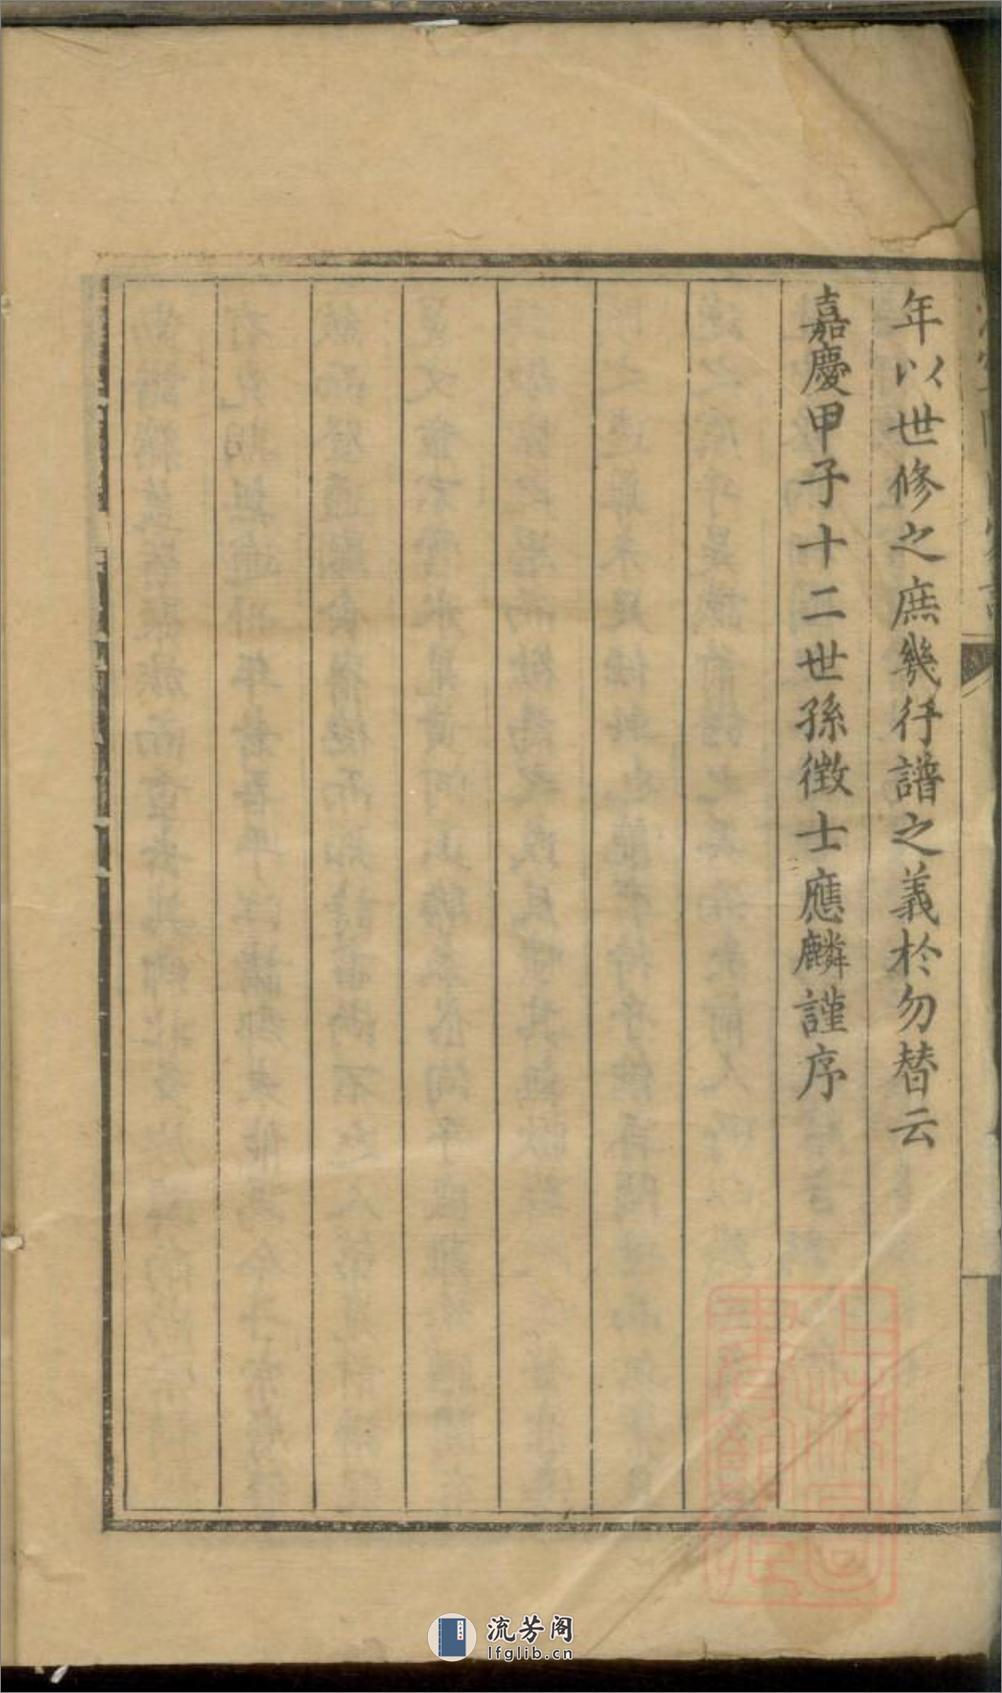 年以世修之庶幾行譜之義於勿替云
嘉慶甲子十二世孫徴士應麟謹序
上海圖書館藏
流芳阁
lfglib.cn